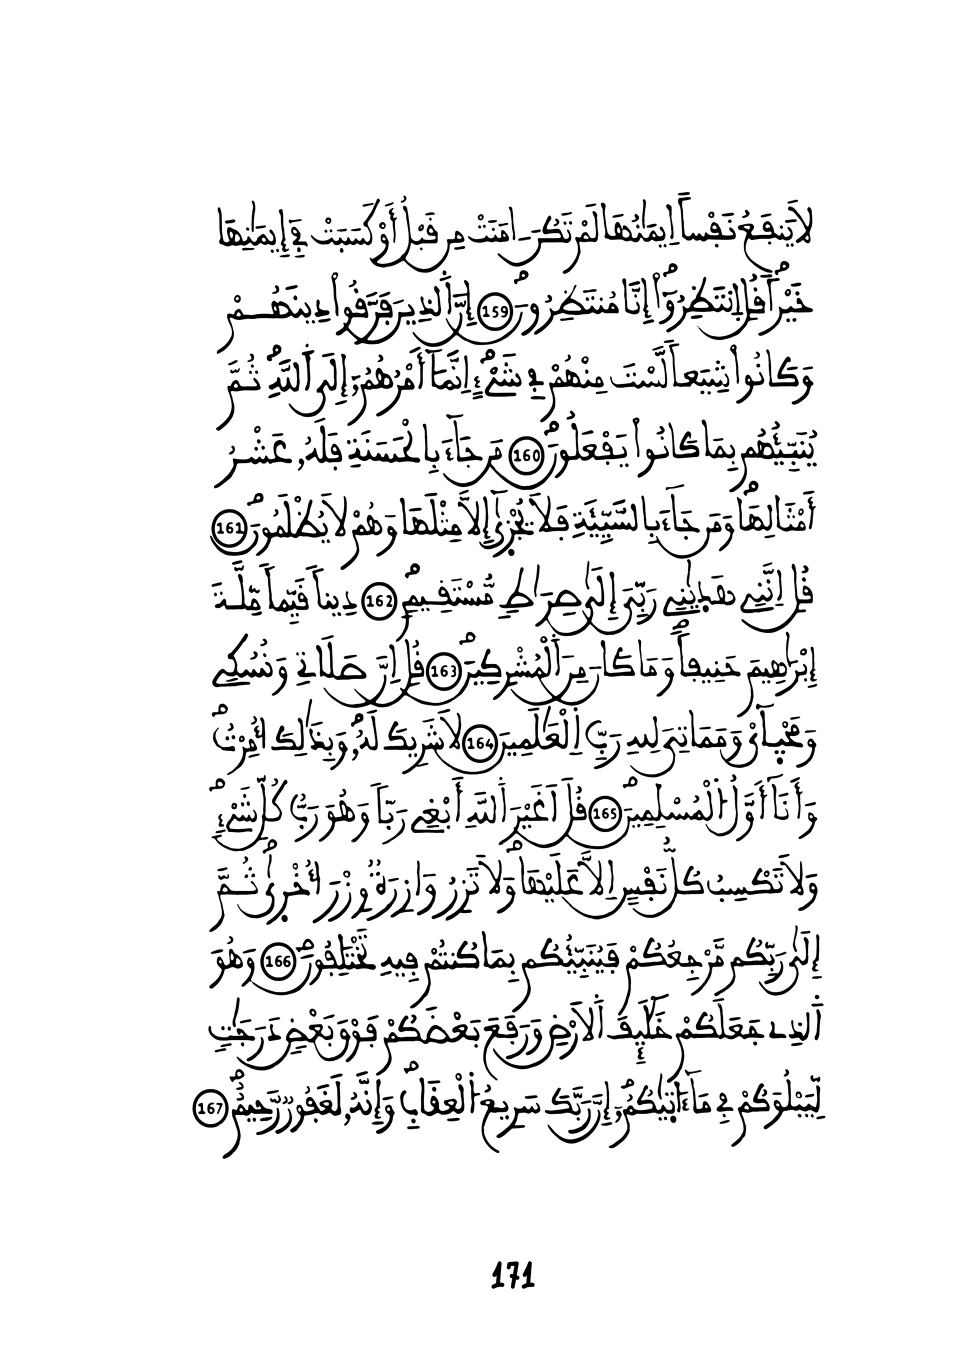 لَا يَنفَعُ نَفْساً اِيمَٰنُهَا لَمْ تَكُنَ ـ امَنَتْ مِن قَبْلُ أَوْ كَسَبَتْ فِےٓ إِيمَٰنِهَا
خَيْراٗۖ قُلِ اِ۪نتَظِرُوٓاْ إِنَّا مُنتَظِرُونَۖ 159 إِنَّ اَ۬لذِينَ فَرَّقُواْ دِينَهُمْ
وَكَانُواْ شِيَعاٗ لَّسْتَ مِنْهُمْ فِے شَےْءٍۖ اِنَّمَآ أَمْرُهُمُۥٓ إِلَى اَ۬للَّهِۖ ثُمَّ
يُنَبِّئُهُم بِمَا كَانُواْ يَفْعَلُونَۖ 160 مَن جَآءَ بِالْحَسَنَةِ فَلَهُۥ عَشْرُ
أَمْثَالِهَاۖ وَمَن جَآءَ بِالسَّيِّئَةِ فَلَا تُجْز۪ىٰٓ إِلَّا مِثْلَهَا وَهُمْ لَا يُظْلَمُونَۖ 161
قُلِ اِنَّنِے هَد۪يٰنِے رَبِّيَ إِلَىٰ صِرَٰطٖ مُّسْتَقِيمٖۖ 162 دِيناٗ قَيِّماٗ مِّلَّةَ
إِبْرَٰهِيمَ حَنِيفاٗ وَمَا كَانَ مِنَ اَ۬لْمُشْرِكِينَۖ 163 قُلِ اِنَّ صَلَاتِے وَنُسُكِے
وَمَحْي۪آےْ وَمَمَاتِيَ لِلهِ رَبِّ اِ۬لْعَٰلَمِينَ 164 لَا شَرِيكَ لَهُۥۖ وَبِذَٰلِكَ أُمِرْتُۖ
وَأَنَآ أَوَّلُ اُ۬لْمُسْلِمِينَۖ 165 قُلَ اَغَيْرَ اَ۬للَّهِ أَبْغِے رَبّاٗ وَهُوَ رَبُّ كُلِّ شَےْءٖۖ
وَلَا تَكْسِبُ كُلُّ نَفْسٍ اِلَّا عَلَيْهَاۖ وَلَا تَزِرُ وَازِرَةٞ وِزْرَ أُخْر۪ىٰۖ ثُمَّ
إِلَىٰ رَبِّكُم مَّرْجِعُكُمْ فَيُنَبِّئُكُم بِمَا كُنتُمْ فِيهِ تَخْتَلِفُونَۖ 166 وَهُوَ
اَ۬لذِے جَعَلَكُمْ خَلَٰٓئِفَ اَ۬لَارْضِ وَرَفَعَ بَعْضَكُمْ فَوْقَ بَعْضٖ دَرَجَٰتٖ
لِّيَبْلُوَكُمْ فِے مَآ ءَات۪يٰكُمُۥٓۖ إِنَّ رَبَّكَ سَرِيعُ اُ۬لْعِقَابِۖ وَإِنَّهُۥ لَغَفُورٞ رَّحِيمٞۖ 167
171